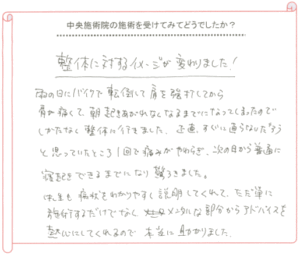 中央施術院の施術を受けてみてどうでしたか?
整体に対するイメージが変わりました!
雨の日にバイクで転倒して肩を強打してから
肩が痛くて朝起きあがれなくなるまでになってしまったので
しかたなく整体に行きました。正直、すぐに直らないだろう
と思っていたところ1回で痛みがやわらぎ、次の日から普通に
寝起きできるまでになり驚きました。
先生も症状をわかりやすく説明してくれて、ただ単に
施術するだけでなくメンタルな部分からアドバイスを
熱心にしてくれるので本当に助かりました。